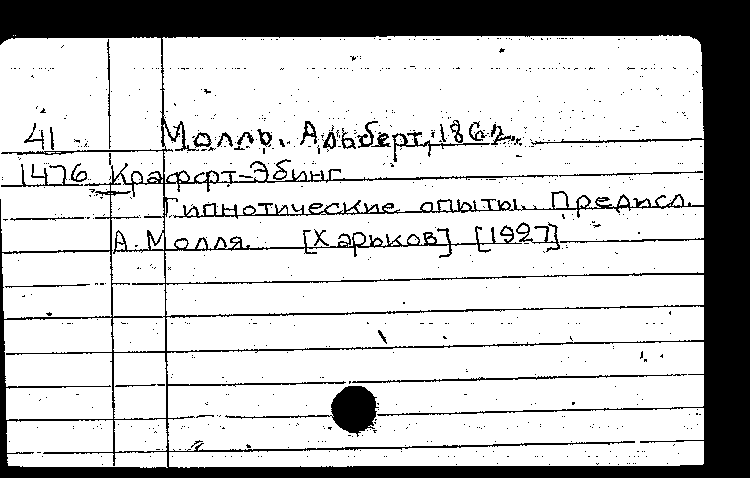 41 Молль, Альберт, 1862
1476 Краффт-Эбинг
Гипнотические опыты. Предисл.
А. Молля. [Харьков] [1927]